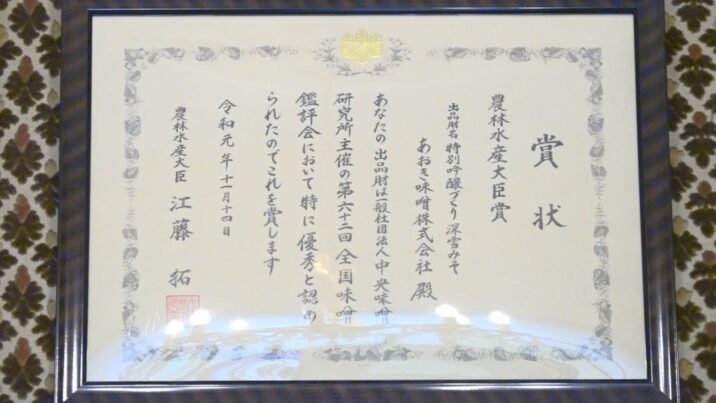 賞状
農林水産大臣賞
出品財名 特別吟醸づくり 深雪みそ
あおき味噌株式会社 殿
あなたの出品財は一般社団法人中央味噌
研究所主催の第六十二回全国味噌
鑑評会において特に優秀と認め
られたのでこれを賞します
令和元年十一月十四日
農林水産大臣 江藤 拓